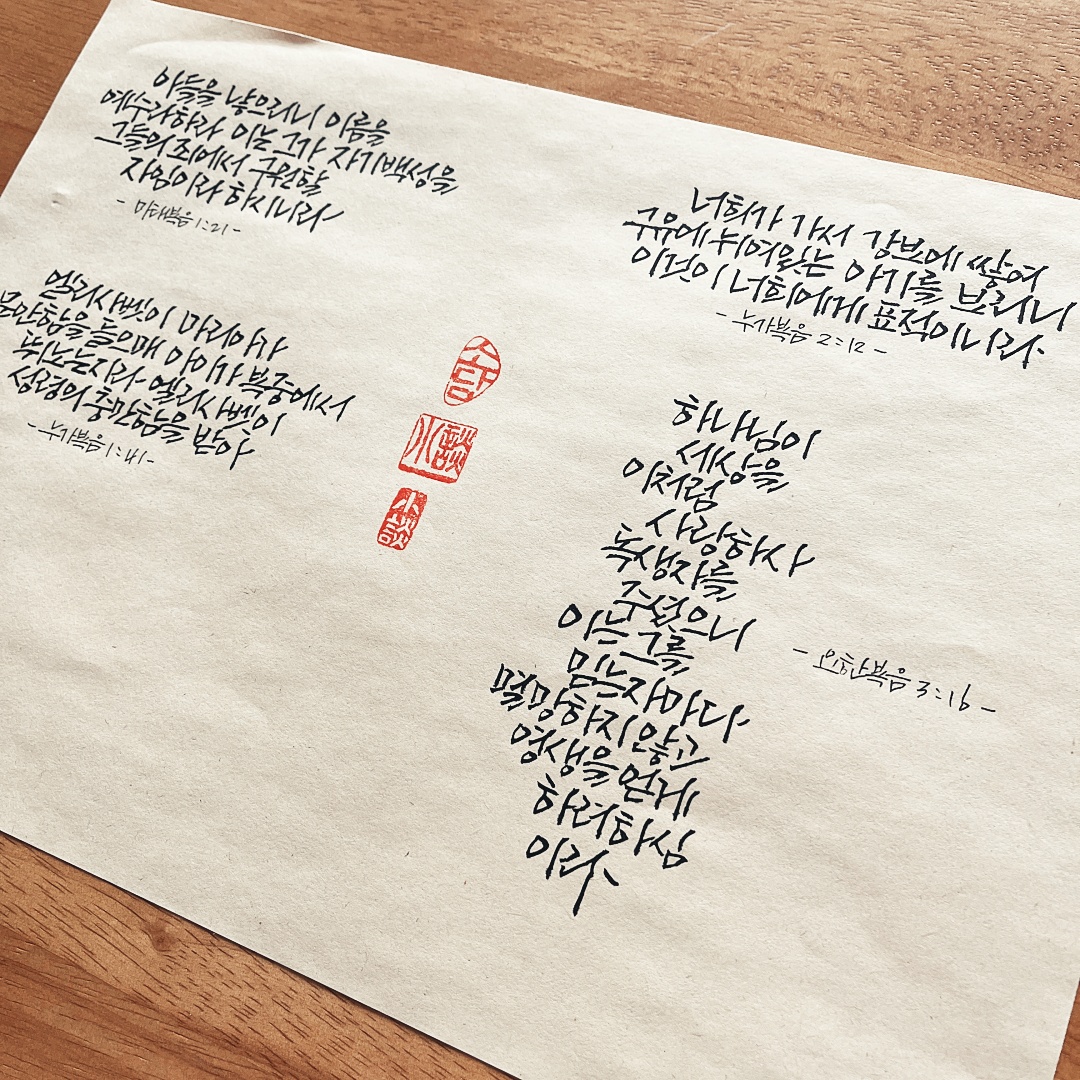 아들을 낳으리니 이름을
예수라하라 이는 그가 자기백성을
그들의 죄에서 구원할
자임이라 하시니라
- 마태복음 1:21 -
엘리사벳이 마리아가
문안함을 들으매 아이가 복중에서
뛰노는지라 엘리사벳이
성령의 충만함을 받아
- 누가복음 1:41 -
소담
小談
小談
너희가 가서 강보에 쌓여
구유에 뉘여있는 아기를 보리니
이것이 너희에게 표적이니라
- 누가복음 2:12 -
하나님이
세상을
이처럼
사랑하사
독생자를
주셨으니
이는 그를
믿는자마다
멸망하지 않고
영생을 얻게
하려하심
이라
- 요한복음 3:16 -